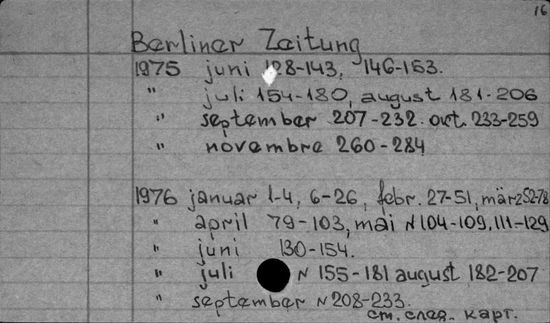 16
Berliner Zeitung
1975 juni 128-143, 146-153.
" juli 154-180, august 181-206
" september 207-232 okt. 233-259
" novembre 260-284
1976 januar 1-4, 6-26, febr. 27-51, märz 52-78
" april 79-103, mai N 104-109, 111-129
" juni 130-154.
" juli N 155-181 august 182-207
" september N 208-233.
см. след. карт.